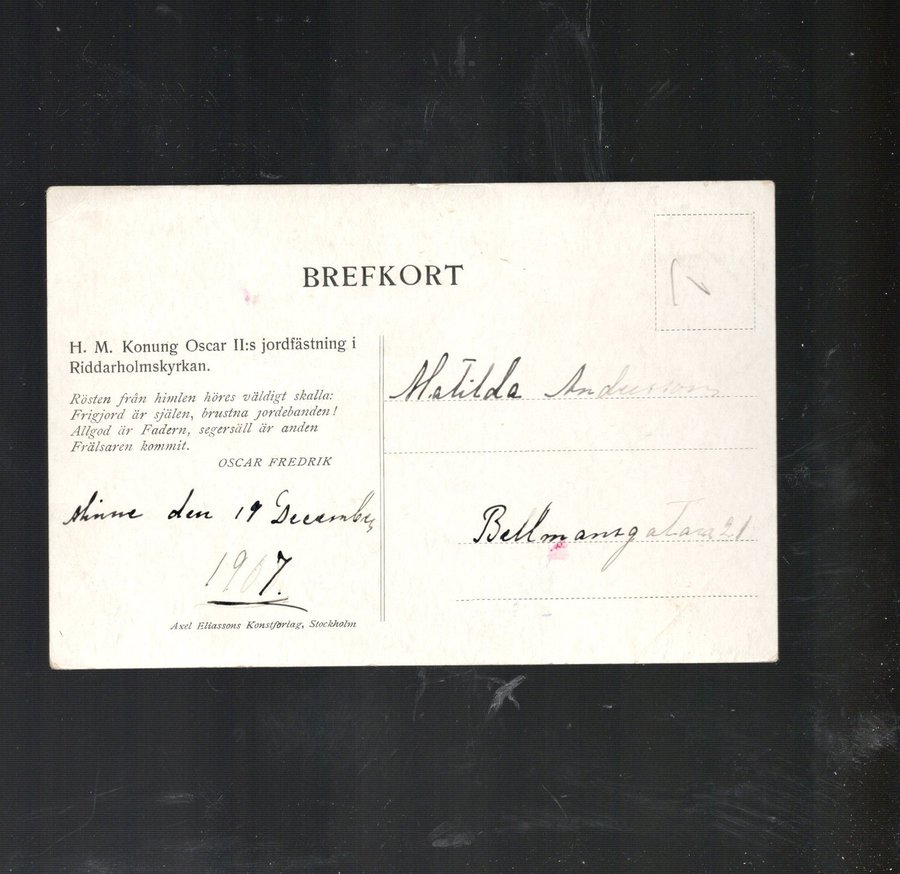 BREFKORT
H. M. Konung Oscar II:s jordfästning i
Riddarholmskyrkan.
Rösten från himlen höres väldigt skalla:
Frigjord är själen, brustna jordebanden!
Allgod är Fadern, segersäll är anden
Frälsaren kommit.
OSCAR FREDRIK
Minne den 19 December
1907.
Axel Eliassons Konstförlag, Stockholm
Matilda Andersson
Bellmansgatan 21